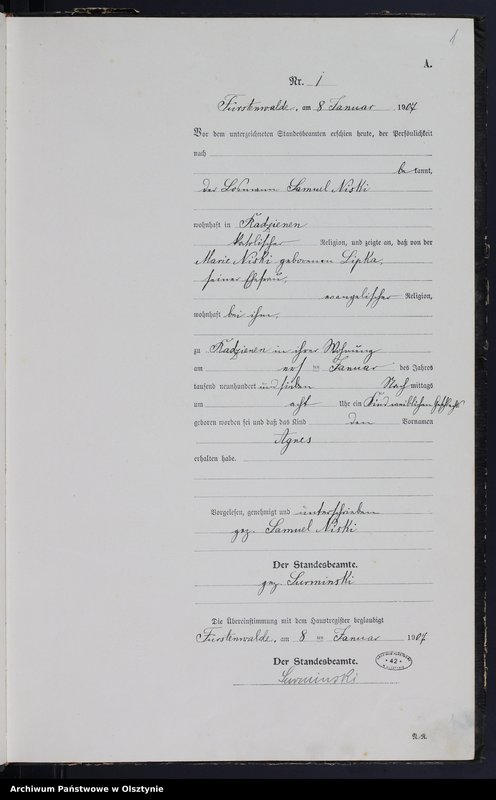 1
A.
Nr. 1
Fürstenwalde, am 8 Januar 1907
Vor dem unterzeichneten Standesbeamten erschien heute, der Persönlichkeit
nach
be kannt,
der Losmann Samuel Niski
wohnhaft in Radzienen
katolischer Religion, und zeigte an, daß von der
Marie Niski geborenen Lipka,
seiner Ehefrau,
evangelischer Religion,
wohnhaft bei ihm,
zu Radzienen in ihrer Wohnung
am ten Januar des Jahres
tausend neunhundert und sieben Nach mittags
um acht Uhr ein Kind weiblichen Geschlechts
geboren worden sei und daß das Kind den Vornamen
Agnes
erhalten habe.
Vorgelesen, genehmigt und unterschrieben
gez. Samuel Niski
Der Standesbeamte.
gez. Surminski
Die Übereinstimmung mit dem Hauptregister beglaubigt
Fürstenwalde, am 8 ten Januar 1907
Der Standesbeamte.
42
Surminski
A.R.
Archiwum Państwowe w Olsztynie